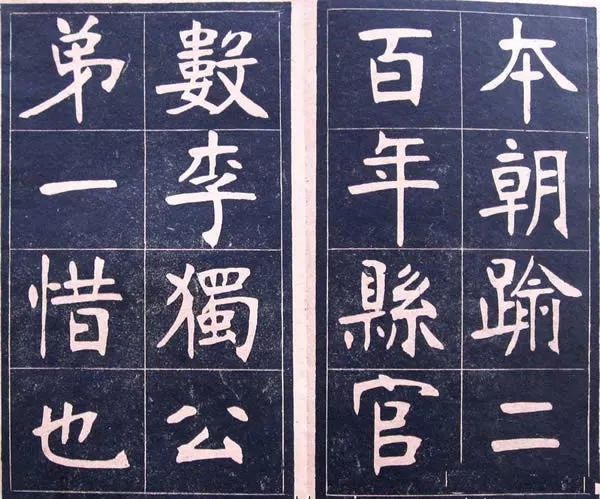 本朝踰二
百年縣官
數李獨公
弟一惜也